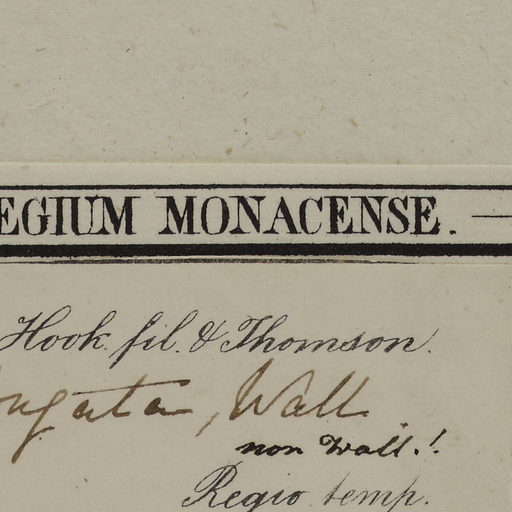 EGIUM MONACENSE. —
Hook. fil. & Thomson.
ongata, Wall
non Wall.!
Regio temp.